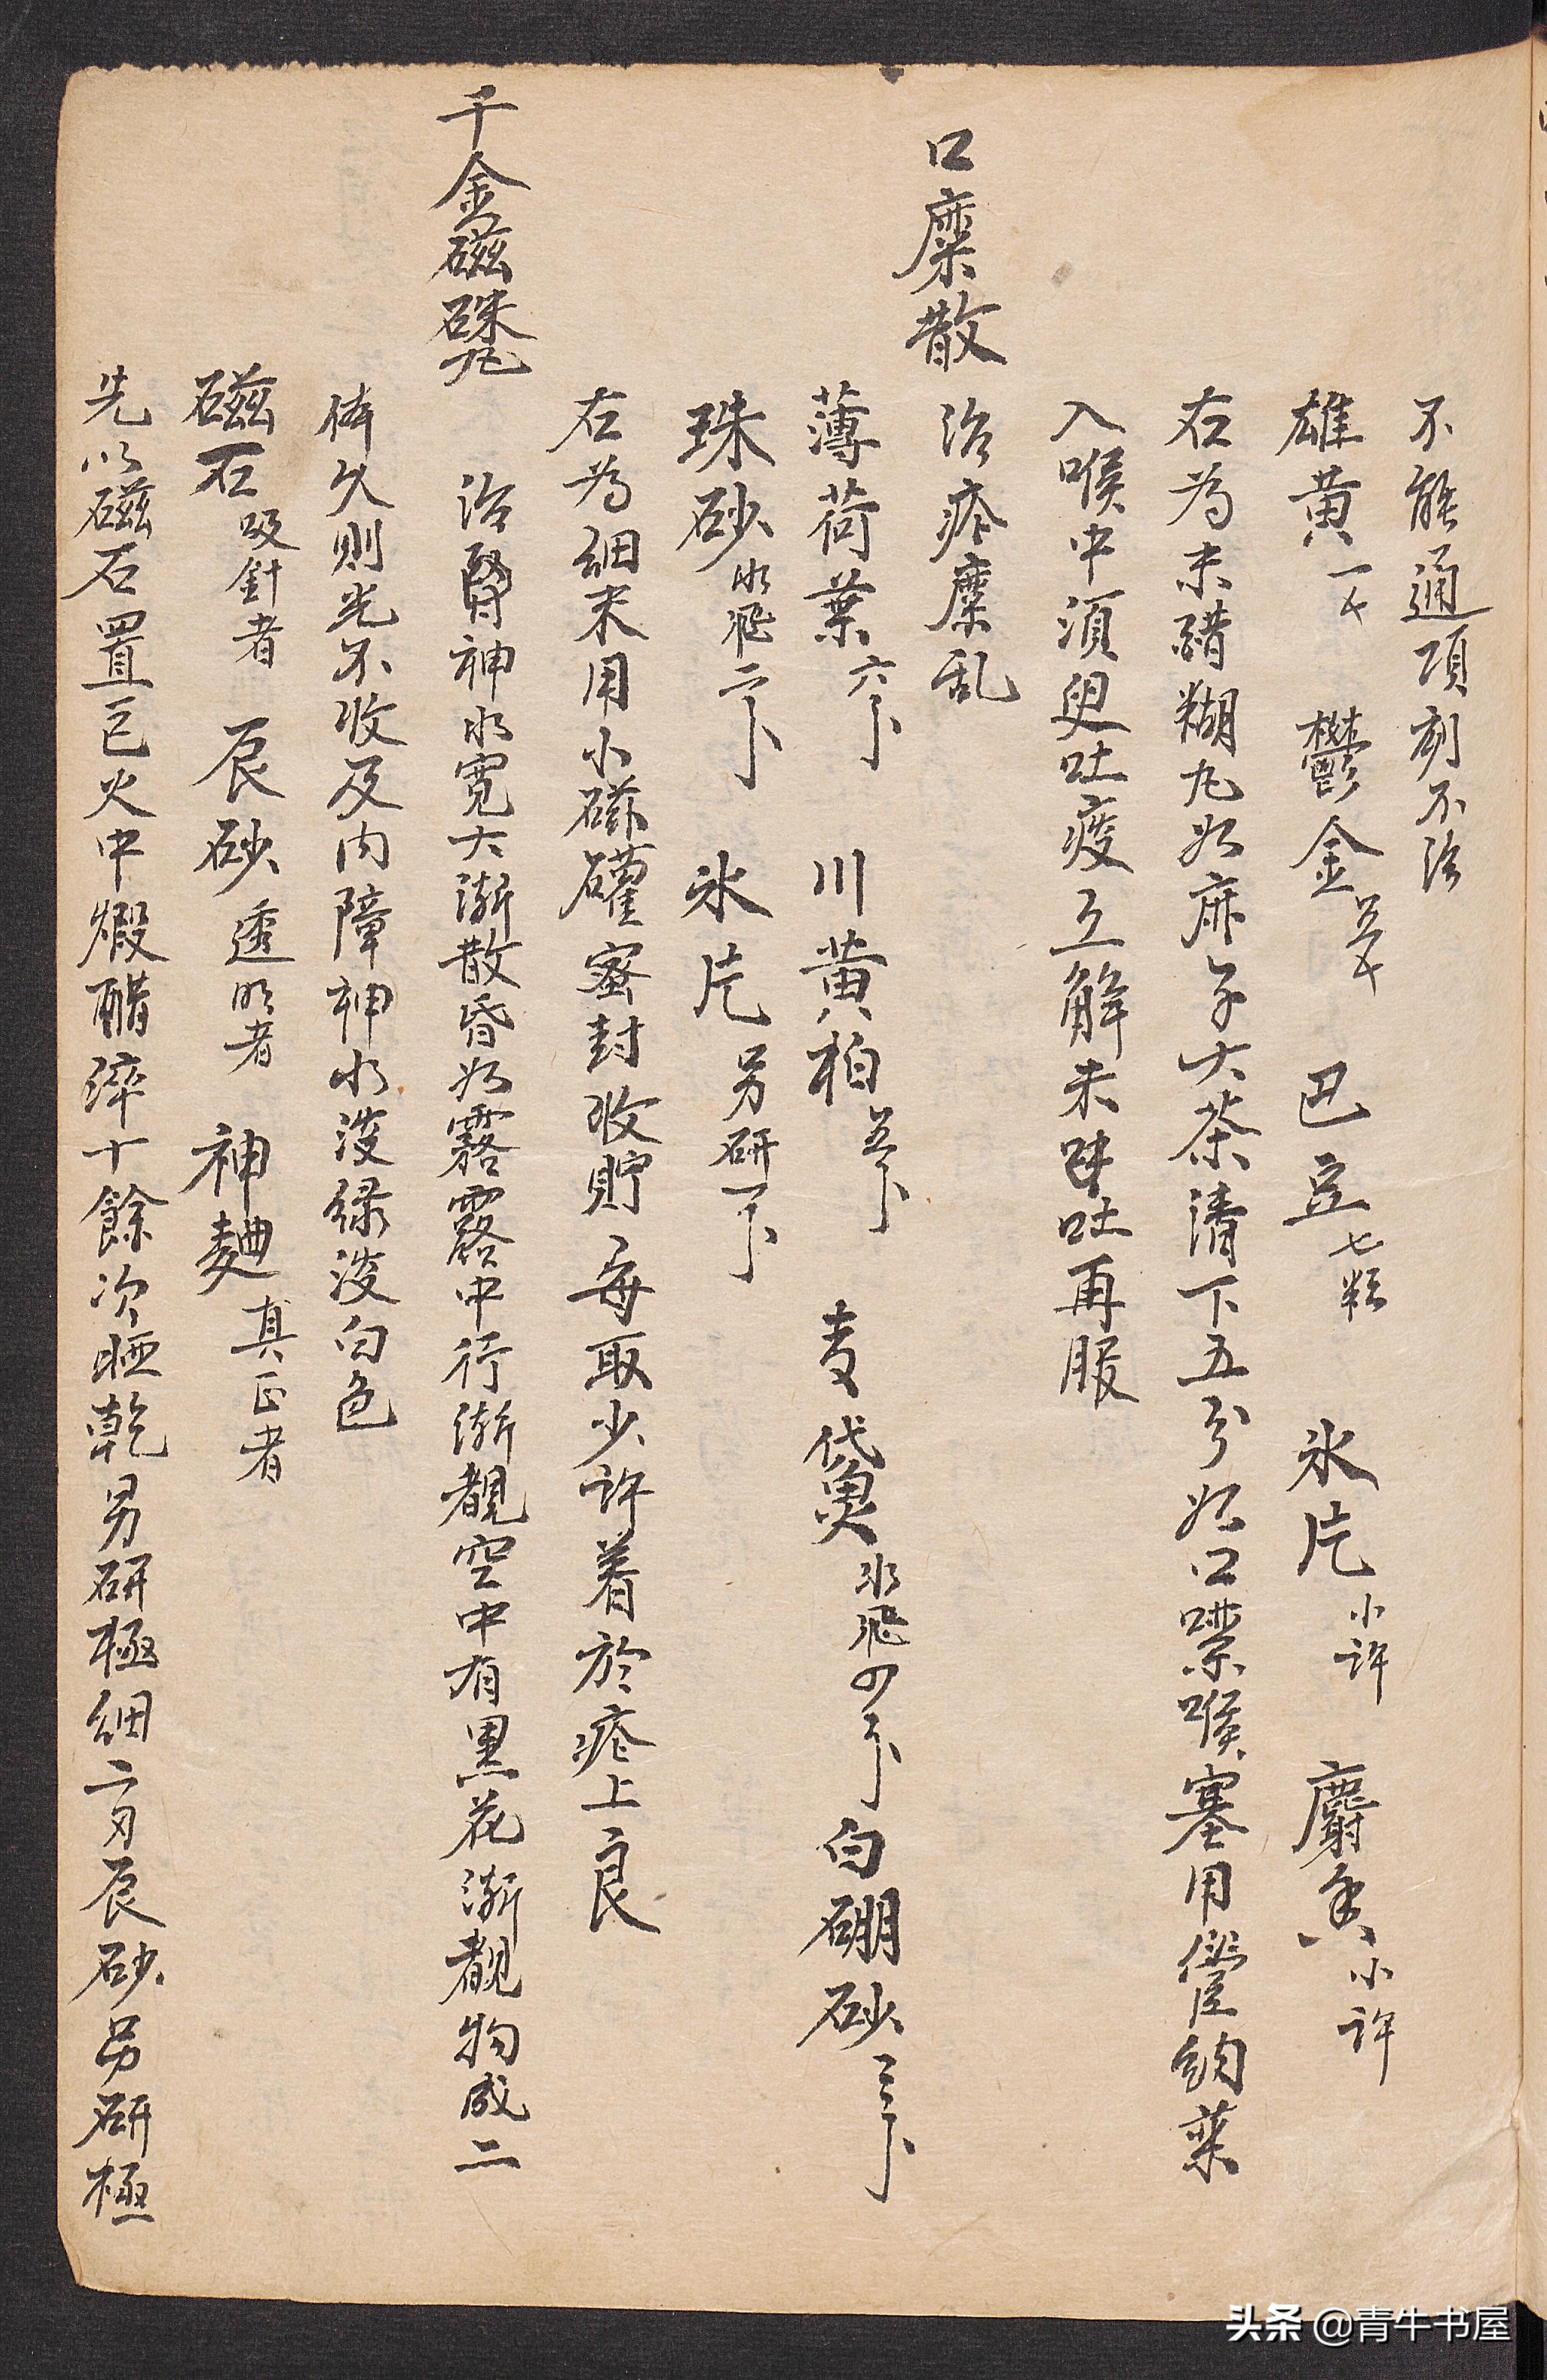 不能通項刻不治
雄黄一个 鬱金五个 巴豆七粒 氷片小許 麝香小許
右為末醋糊丸如麻子大茶清下五分如口噤喉塞用管納藥
入喉中須臾吐痰立解未吐再服
口糜散 治疮糜乱
薄荷葉六卜 川黄柏五卜 青黛水飛四卜 白硼砂三卜
珠砂水飛二卜 氷片另研一卜
右為細末用小磁礶蜜封收貯每取少許着於疮上良
千金磁硃丸 治腎神水寛大漸散昏如霧露中行漸覩空中有黑花漸覩物成二
体久則光不收及内障神水淡緑淡白色
磁石吸針者 辰砂透明者 神麯真正者
先以磁石置巨火中煅醋淬十餘次晒乾另研極細二両辰砂另研極
头条 @青牛书屋